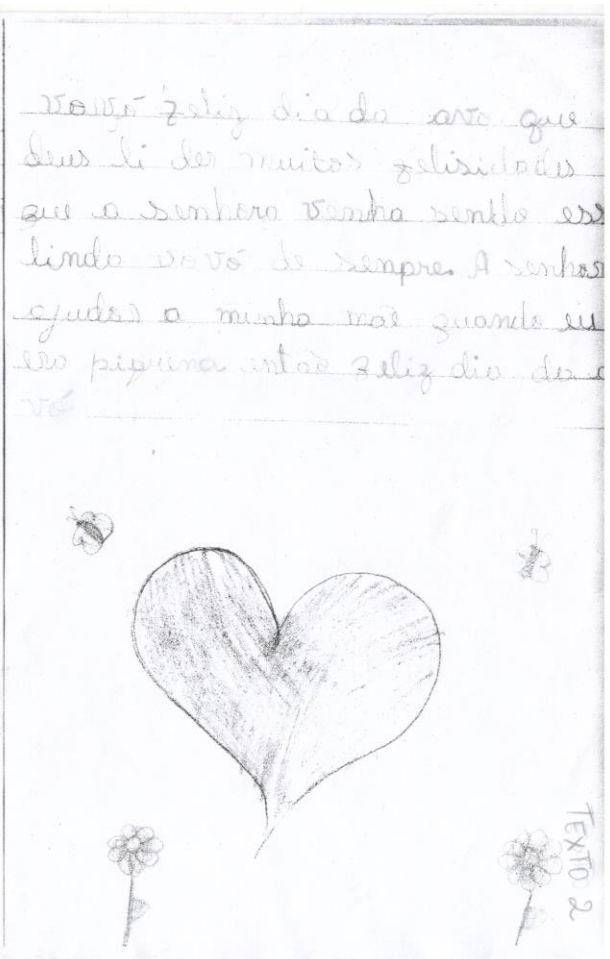 vovó feliz dia da avo que
deus li der muitas felisidades
que a senhora venha sendo ess
linda vovó de senpre. A senhor
ajudor a minha mãe quando eu
era piquina então feliz dia da a
vó
TEXTO 2